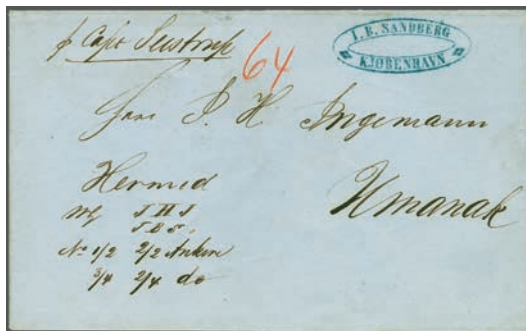 p Capt Seistrup
64
I. B. SANDBERG
KJØBENHAVN
Herr P. H. Ingemann
Umanak
Hermed
Mg J H I
J B S.
No 1/2 2/2 Ankere
3/4 2/4 do